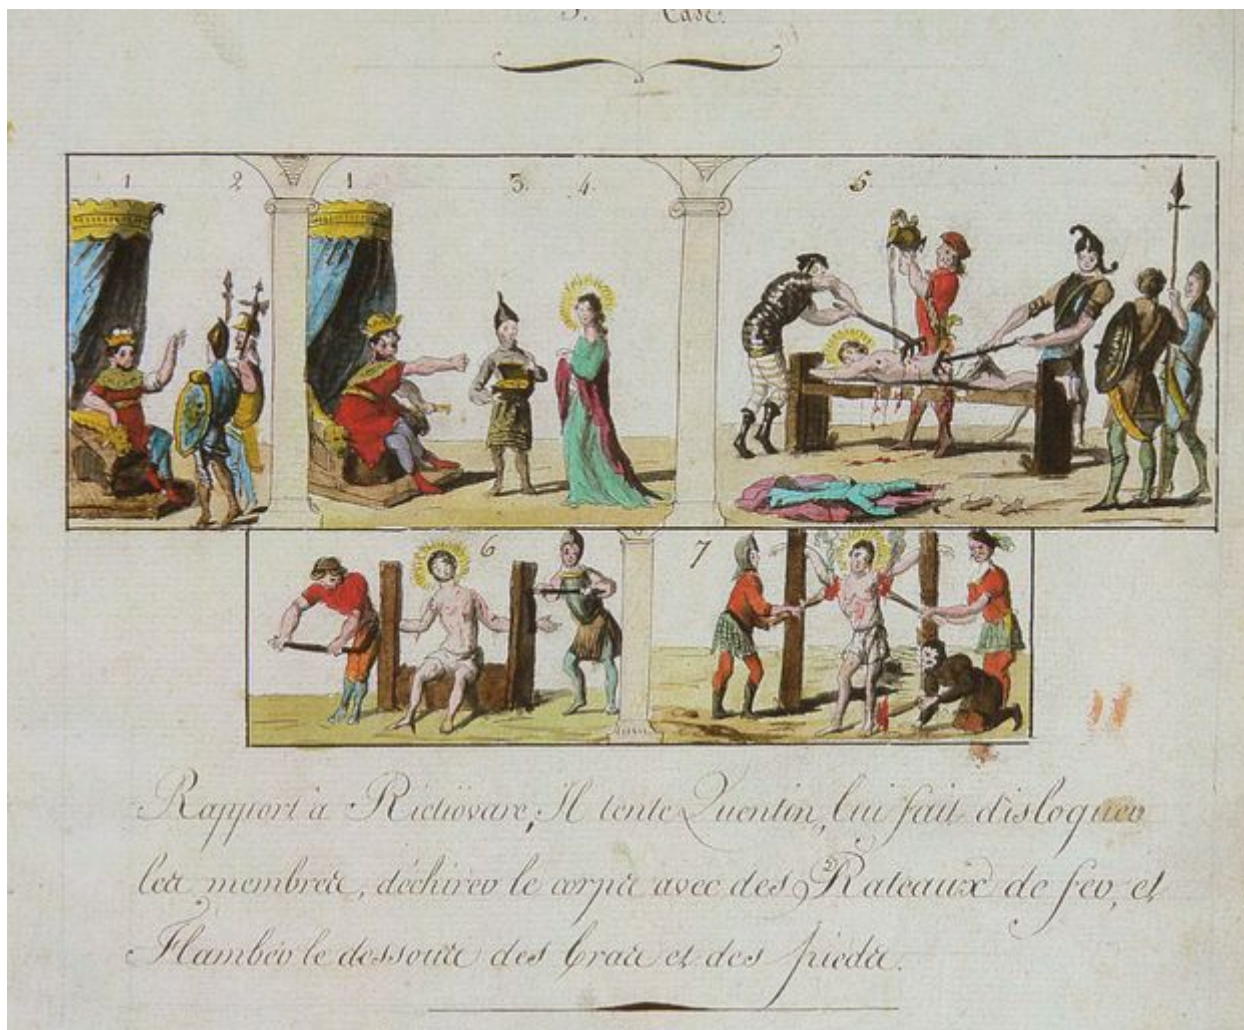 5. Case.
1 2 1 3. 4. 5.
6 7
Rapport à Rictiovare, Il tente Quentin, lui fait disloquer
les membres, déchirer le corps avec des Rateaux de fer, et
Flamber le dessous des bras et des pieds.